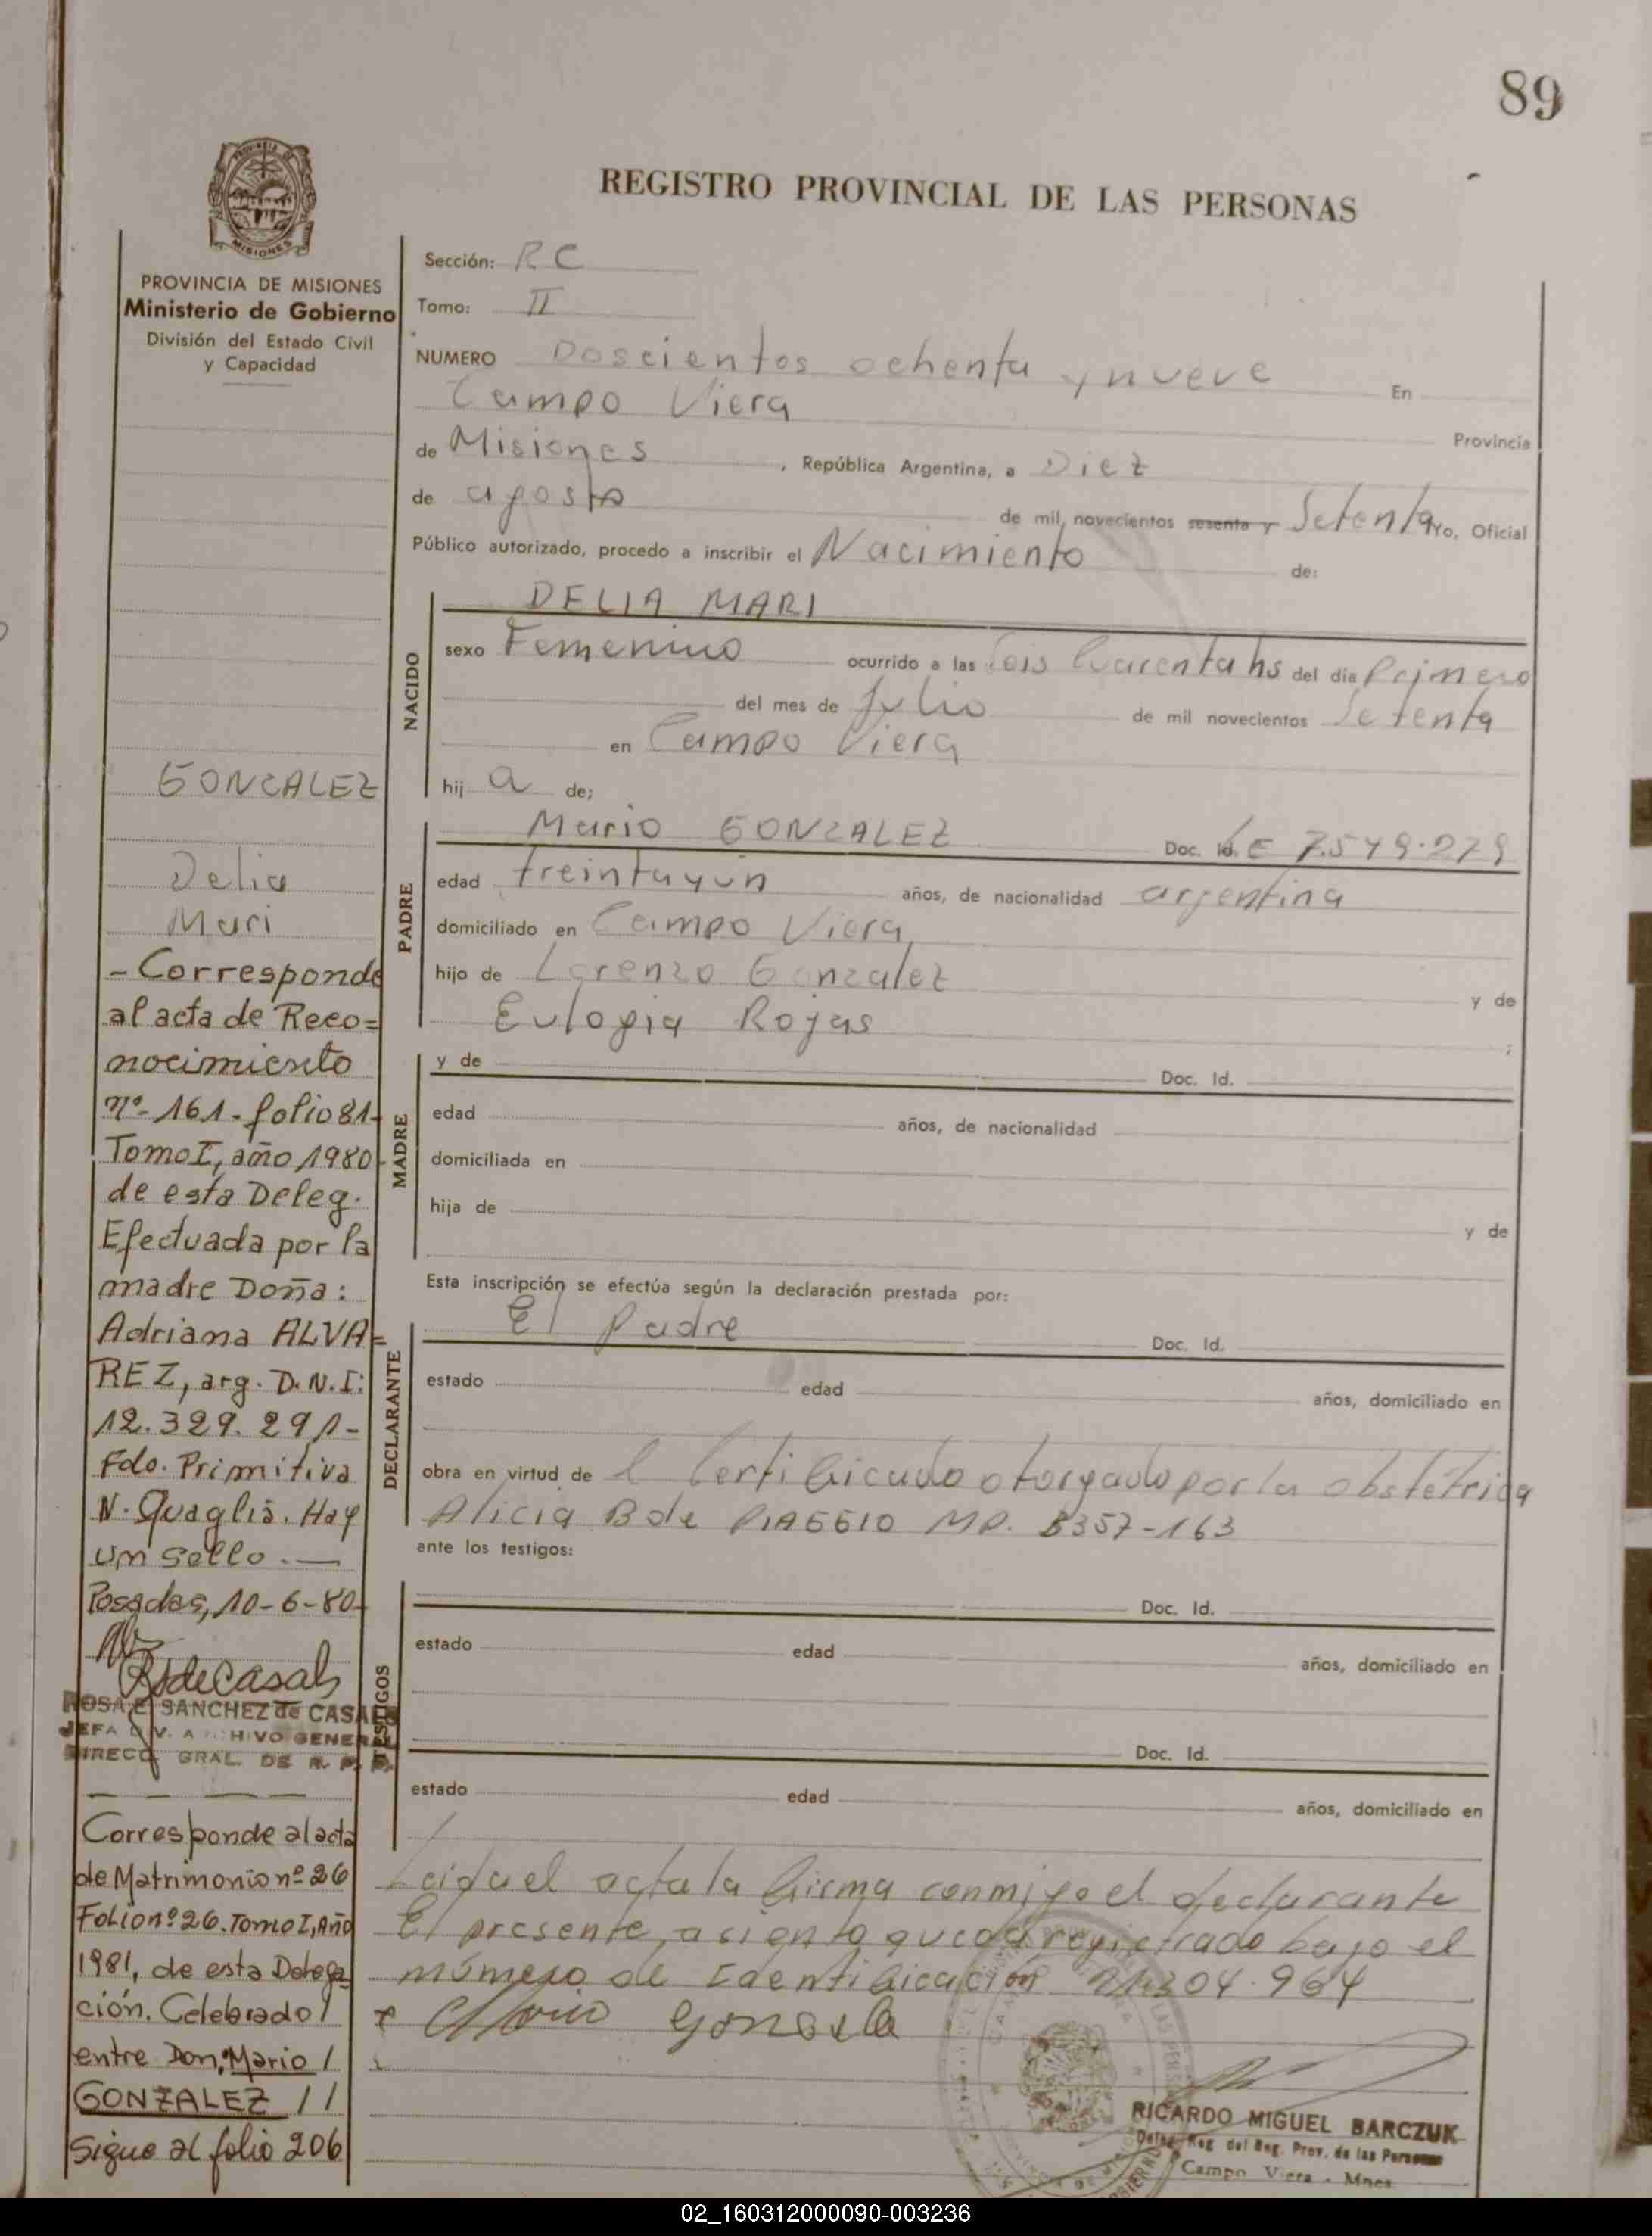 89
PROVINCIA DE
MISIONES
PROVINCIA DE MISIONES
Ministerio de Gobierno
División del Estado Civil
y Capacidad
GONZALEZ
Delia
Mari
- Corresponde
al acta de Reco=
nocimiento
nº- 161- folio 81-
Tomo I, año 1980-
de esta Deleg.
Efectuada por la
madre Doña:
Adriana ALVA=
REZ, arg. D.N.I:
12.329.291-
Fdo. Primitiva
N. Quaglia. Hay
un sello. —
Posadas, 10-6-80-
RSdeCasals
ROSA E. SANCHEZ de CASALS
JEFA DIV. ARCHIVO GENERAL
DIRECC. GRAL. DE R. P. P.
Corresponde al acta
de Matrimonio nº 26
Folio nº 26. Tomo I, Año
1981, de esta Delega
ción. Celebrado /
entre Don: Mario /
GONZALEZ //
Sigue al folio 206
REGISTRO PROVINCIAL DE LAS PERSONAS
Sección: RC
Tomo: II
NUMERO Doscientos ochenta y nueve En
Campo Viera Provincia
de Misiones, República Argentina, a Diez
de agosto de mil novecientos sesenta y Setenta Yo, Oficial
Público autorizado, procedo a inscribir el Nacimiento de:
NACIDO
DELIA MARI
sexo Femenino ocurrido a las Seis Cuarenta hs del día Primero
del mes de Julio de mil novecientos Setenta
en Campo Viera
hij a de;
PADRE
Mario GONZALEZ Doc. Id. LE 7.549.279
edad treintayun años, de nacionalidad argentina
domiciliado en Campo Viera
hijo de Lorenzo Gonzalez y de
Eulogia Rojas ;
MADRE
y de Doc. Id.
edad años, de nacionalidad
domiciliada en
hija de y de
Esta inscripción se efectúa según la declaración prestada por:
DECLARANTE
El padre Doc. Id.
estado edad años, domiciliado en
obra en virtud de l Certificado otorgado por la obstétrica
Alicia B de MP. B357-163
ante los testigos:
TESTIGOS
Doc. Id.
estado edad años, domiciliado en
Doc. Id.
estado edad años, domiciliado en
Leida el acta la firma conmigo el declarante
El presente asiento queda registrado bajo el
número de Identificación 21.304.964
Mario
RICARDO MIGUEL BARCZUK
Deleg. Reg. del Reg. Prov. de las Personas
Campo Viera - Mnes.
02_160312000090-003236